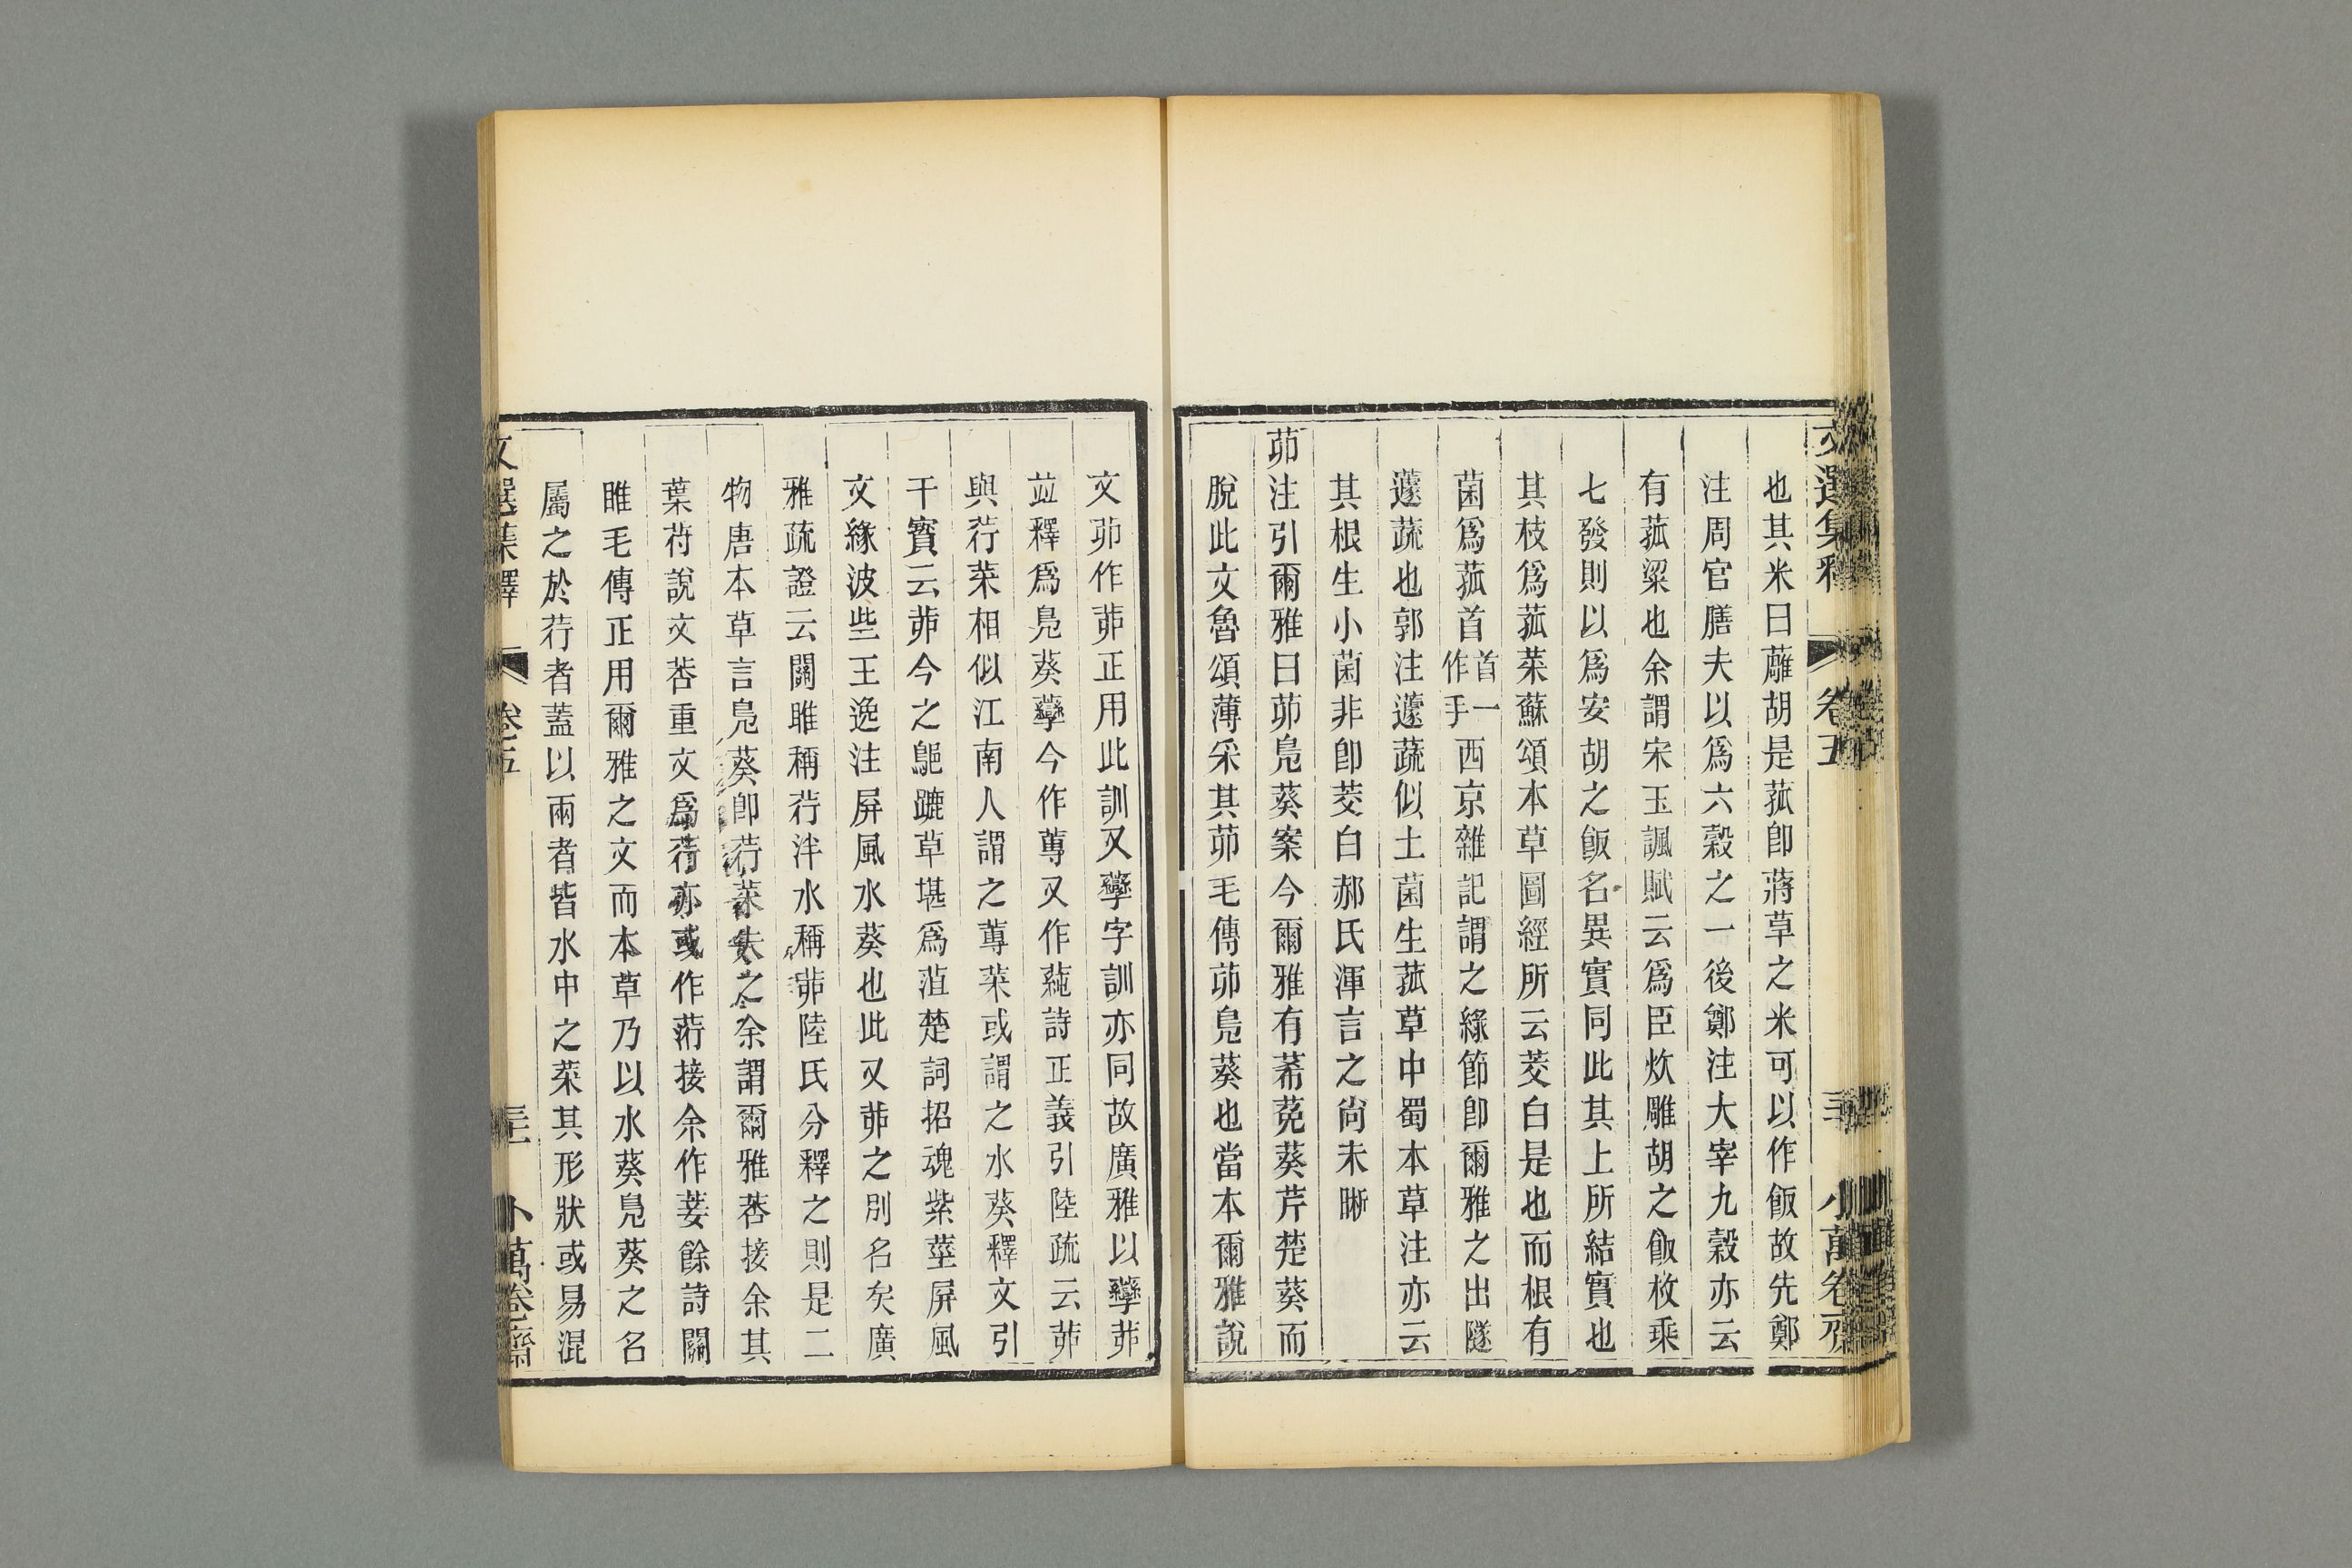 文選集釋 卷五 三十 小萬卷齋
也其米曰蘸胡是菰卽蔣草之米可以作飯故先鄭
注周官膳夫以爲六榖之一後鄭注大宰九榖亦云
有菰粱也余謂宋玉諷賦云爲臣炊雕胡之飯枚乘
七發則以爲安胡之飯名異實同此其上所結實也
其枝爲菰菜蘇頌本草圖經所云茭白是也而根有
菌爲菰首首一作手西京雜記謂之綠節卽爾雅之出隧
蘧蔬也郭注蘧蔬似土菌生菰草中蜀本草注亦云
其根生小菌非卽茭白郝氏渾言之尙未晰
茆注引爾雅曰茆鳧葵案今爾雅有莃菟葵芹楚葵而
脫此文魯頌薄采其茆毛傳茆鳧葵也當本爾雅說
文茆作茆正用此訓又孿字訓亦同故廣雅以孿茆
竝釋爲鳧葵孿今作蓴又作蒓詩正義引陸疏云茆
與荇菜相似江南人謂之蓴菜或謂之水葵釋文引
干寶云茆今之䳈蹗草堪爲菹楚詞招魂紫莖屏風
文緣波些王逸注屏風水葵也此又茆之別名矣廣
雅疏證云關雎稱荇泮水稱茆陸氏分釋之則是二
物唐本草言鳧葵卽荇菜失之余謂爾雅莕接余其
葉苻說文莕重文爲荇亦或作䓷接余作菨餘詩關
雎毛傳正用爾雅之文而本草乃以水葵鳧葵之名
屬之於荇者蓋以兩者皆水中之菜其形狀或易混
文選集釋 卷五 三十一 小萬卷齋